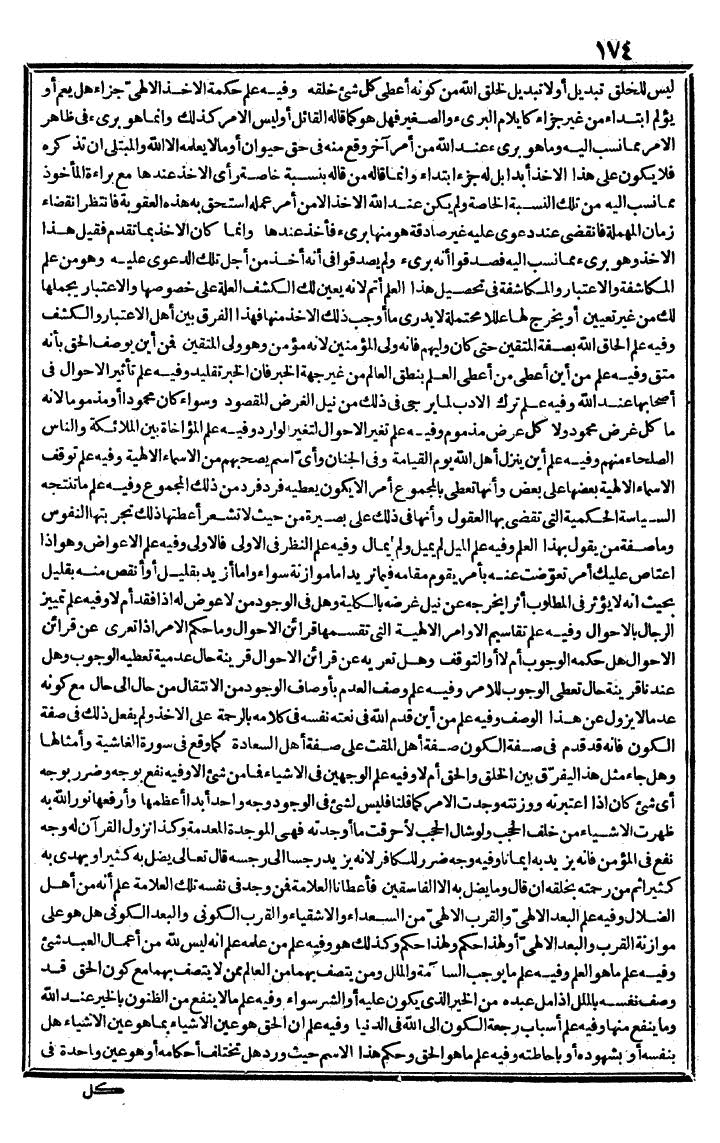 ١٧٤
ليس للخلق تبديل أولا تبديل لخلق الله من كونه أعطى كل شئ خلقه وفيه علم حكمة الاخذ الالهيّ جزاء هل يعم أو
يؤلم ابتداء من غير جزاء كايلام البرىء والصغير فهل هو كما قاله القائل أوليس الامر كذلك وانما هو برىء فى ظاهر
الامر مما نسب اليه وما هو برىء عند الله من أمر آخر وقع منه فى حق حيوان أو ما لا يعلمه الا الله والمبتلى ان تذكره
فلا يكون على هذا الاخذ أبدا بل له جزء ابتداء وانما قاله من قاله بنسبة خاصة رأى الاخذ عندها مع براءة المأخوذ
مما نسب اليه من تلك النسبة الخاصة ولم يكن عند الله الاخذ الا من أمر عمله استحق به هذه العقوبة فانتظر انقضاء
زمان المهملة فانقضى عند دعوى عليه غير صادقة هو منها برىء فأخذ عندها وانما كان الاخذ بما تقدم فقيل هذا
الاخذ وهو برىء مما نسب اليه فصدقوا أنه برىء ولم يصدقوا فى أنه أخذ من أجل تلك الدعوى عليه وهو من علم
المكاشفة والاعتبار والمكاشفة فى تحصيل هذا العلم أتم لانه يعين لك الكشف العلة على خصوصها والاعتبار يجملها
لك من غير تعيين أو يخرج لها عللا محتملة لا يدرى ما أوجب ذلك الاخذ منها فهذا الفرق بين أهل الاعتبار والكشف
وفيه علم الحاق الله بصفة المتقين حتى كان وليهم فانه ولى المؤمنين لانه مؤمن وهو ولى المتقين فمن أين يوصف الحق بأنه
متق وفيه علم من أين أعطى من أعطى العلم بنطق العالم من غير جهة الخبر فان الخبر تقليد وفيه علم تأثير الاحوال فى
أصحابها عند الله وفيه علم ترك الادب لما يرجى فى ذلك من نيل الغرض المقصود وسواء كان محمودا أو مذموما لانه
ما كل غرض محمود ولا كل عرض مذموم وفيه علم تغير الاحوال لتغير الوارد وفيه علم المؤاخاة بين الملائكة والناس
الصلحاء منهم وفيه علم أين ينزل أهل الله يوم القيامة وفى الجنان وأىّ اسم يصحبهم من الاسماء الالهية وفيه علم توقف
الاسماء الالهية بعضها على بعض وأنها تعطى بالمجموع أمرا لا يكون يعطيه فرد فرد من ذلك المجموع وفيه علم ما تنتجه
السياسة الحكمية التى تقضى بها العقول وأنها فى ذلك على بصيرة من حيث لا تشعر أعطتها ذلك تجربتها النفوس
وما صفة من يقول بهذا العلم وفيه علم الميل لم يميل ولم يمال وفيه علم النظر فى الاولى فالاولى وفيه علم الاعواض وهو اذا
اعتاص عليك أمر تعوّضت عنه بأمر يقوم مقامه فما تريد اما موازنة سواء واما أزيد بقليل أو أنقص منه بقليل
بحيث انه لا يؤثر فى المطلوب أثرا يخرجه عن نيل غرضه بالكلية وهل فى الوجود من لا عوض له اذا فقد أم لا وفيه علم تمييز
الرجال بالاحوال وفيه علم تقاسيم الاوامر الالهية التى تقسمها قرائن الاحوال وما حكم الامر اذا تعرى عن قرائن
الاحوال هل حكمه الوجوب أم لا أو التوقف وهل تعريه عن قرائن الاحوال قرينة حال عدمية تعطيه الوجوب وهل
عندنا قرينة حال تعطى الوجوب للامر وفيه علم وصف العدم بأوصاف الوجود من الانتقال من حال الى حال مع كونه
عدما لا يزول عن هذا الوصف وفيه علم من أين قدم الله فى نعته نفسه فى كلامه بالرحمة على الاخذ ولم يفعل ذلك فى صفة
الكون فانه قد قدم فى صفة الكون صفة أهل المقت على صفة أهل السعادة كما وقع فى سورة الغاشية وأمثالها
وهل جاء مثل هذا ليفرّق بين الخلق والحق أم لا وفيه علم الوجهين فى الاشياء فما من شئ الا وفيه نفع بوجه وضرر بوجه
أى شئ كان اذا اعتبرته ووزنته وجدت الامر كما قلنا فليس لشئ فى الوجود وجه واحد أبدا أعظمها وأرفعها نور الله به
ظهرت الاشياء من خلف الحجب ولو شال الحجب لأحرقت ما أوجدته فهى الموجدة المعدمة وكذا نزول القرآن له وجه
نفع فى المؤمن فانه يزيد به ايمانا وفيه وجه ضرر للكافر لانه يزيد رجسا الى رجسه قال تعالى يضل به كثيرا ويهدى به
كثيرا ثم من رحمته بخلقه ان قال وما يضل به الا الفاسقين فأعطانا العلامة فمن وجد فى نفسه تلك العلامة علم أنه من أهل
الضلال وفيه علم البعد الالهىّ والقرب الالهىّ من السعداء والاشقياء والقرب الكونى والبعد الكونى هل هو على
موازنة القرب والبعد الالهىّ أو لهذا حكم ولهذا حكم وكذلك هو وفيه علم من علمه علم انه ليس لله من أعمال العبيد شئ
وفيه علم ما هو العلم وفيه علم ما يوجب السآمة والملل ومن يتصف بهما من العالم ممن لا يتصف بهما مع كون الحق قد
وصف نفسه بالملل اذا مل عبده من الخير الذى يكون عليه أو الشر سواء وفيه علم ما لا ينفع من الظنون بالخير عند الله
وما ينفع منها وفيه علم أسباب رجعة الكون الى الله فى الدنيا وفيه علم ان الحق هو عين الاشياء بما هو عين الاشياء هل
بنفسه أو بشهوده أو باحاطته وفيه علم ما هو الحق وحكم هذا الاسم حيث ورد هل تختلف أحكامه أو هو عين واحدة فى
كل